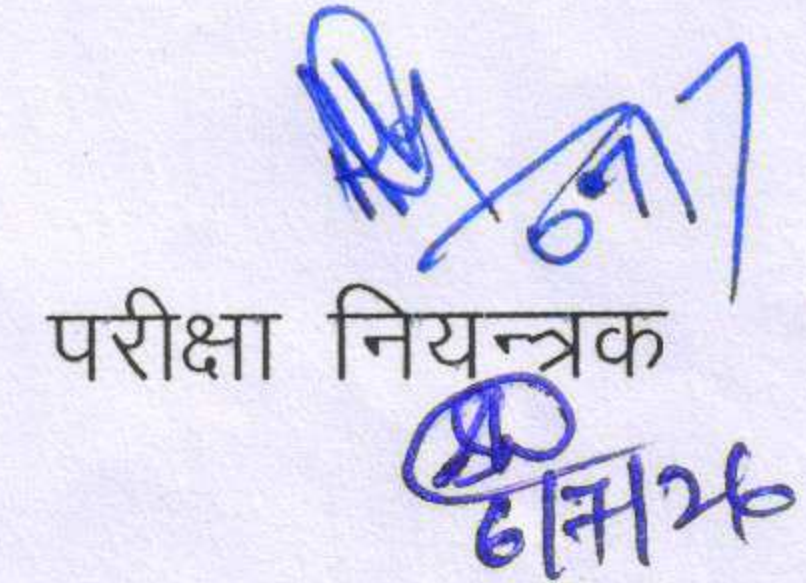 परीक्षा नियन्त्रक
6/7/26